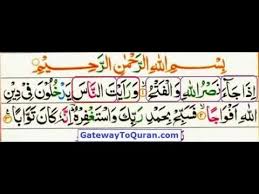 بِسْمِ اللّٰهِ الرَّحْمٰنِ الرَّحِيْمِ
اِذَا جَآءَ نَصْرُ اللّٰهِ وَالْفَتْحُ ۙ﴿۱﴾ وَرَاَيْتَ النَّاسَ يَدْخُلُوْنَ فِيْ دِيْنِ
اللّٰهِ اَفْوَاجًا ۙ﴿۲﴾ فَسَبِّحْ بِحَمْدِ رَبِّكَ وَاسْتَغْفِرْهُ ؕ اِنَّهٗ كَانَ تَوَّابًا ﴿۳﴾
GatewayToQuran.com